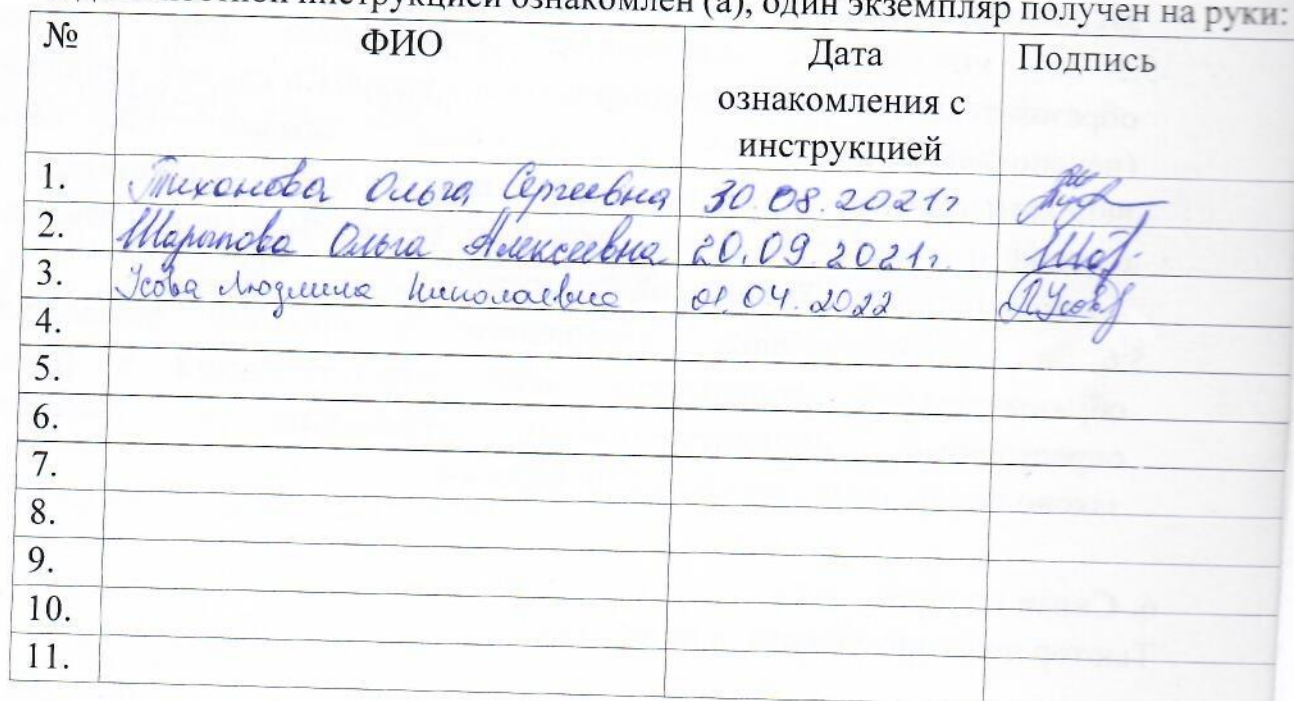 инструкцией ознакомлен (а), один экземпляр получен на руки:
№ ФИО Дата ознакомления с инструкцией Подпись
1. Тихонова Ольга Сергеевна 30.08.2021г
2. Шарыпова Ольга Алексеевна 20.09.2021г.
3. Усова Людмила Николаевна 01.04.2022
4.
5.
6.
7.
8.
9.
10.
11.